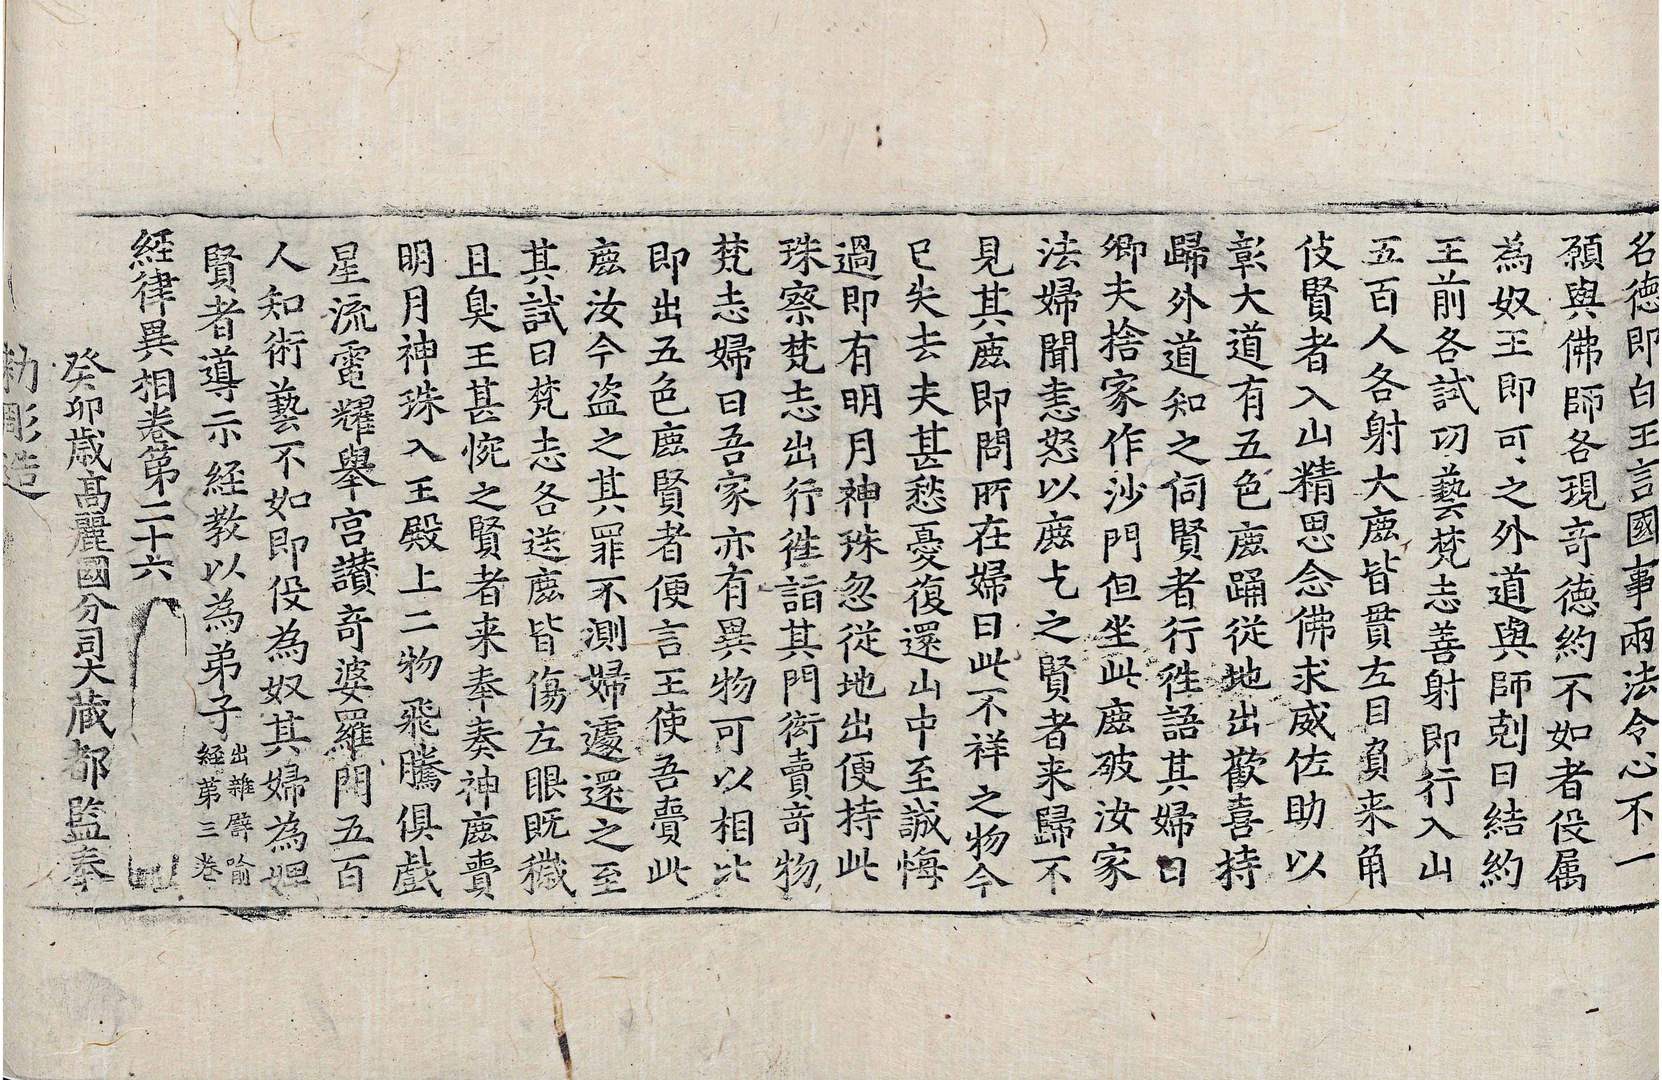 名德即白王言國事兩法令心不一
願與佛師各現竒德約不如者伇属
為奴王即可之外道與師剋日結約
王前各試㓛藝梵志善射即行入山
五百人各射大鹿皆貫左目負来角
伎賢者入山精思念佛求威佐助以
彰大道有五色鹿踊従地出歡喜持
歸外道知之伺賢者行徃語其婦曰
卿夫捨家作沙門但坐此鹿破汝家
法婦聞恚怒以鹿乞之賢者来歸不
見其鹿即問所在婦曰此不祥之物今
已失去夫甚愁憂復還山中至誠悔
過即有明月神珠忽従地出便持此
珠察梵志出行徃詣其門衒賣竒物
梵志婦曰吾家亦有異物可以相比
即出五色鹿賢者便言王使吾賣此
鹿汝今盗之其罪不測婦遽還之至
其試日梵志各送鹿皆傷左眼既穢
且臭王甚惋之賢者来奉奏神鹿賷
明月神珠入王殿上二物飛騰俱戲
星流電耀舉宮讃竒婆羅門五百
人知術藝不如即伇為奴其婦為婢
賢者導示経教以為弟子出雜譬喻経第三卷
経律異相卷第二十六
癸卯歳髙麗國分司大蔵都監奉
勑彫造